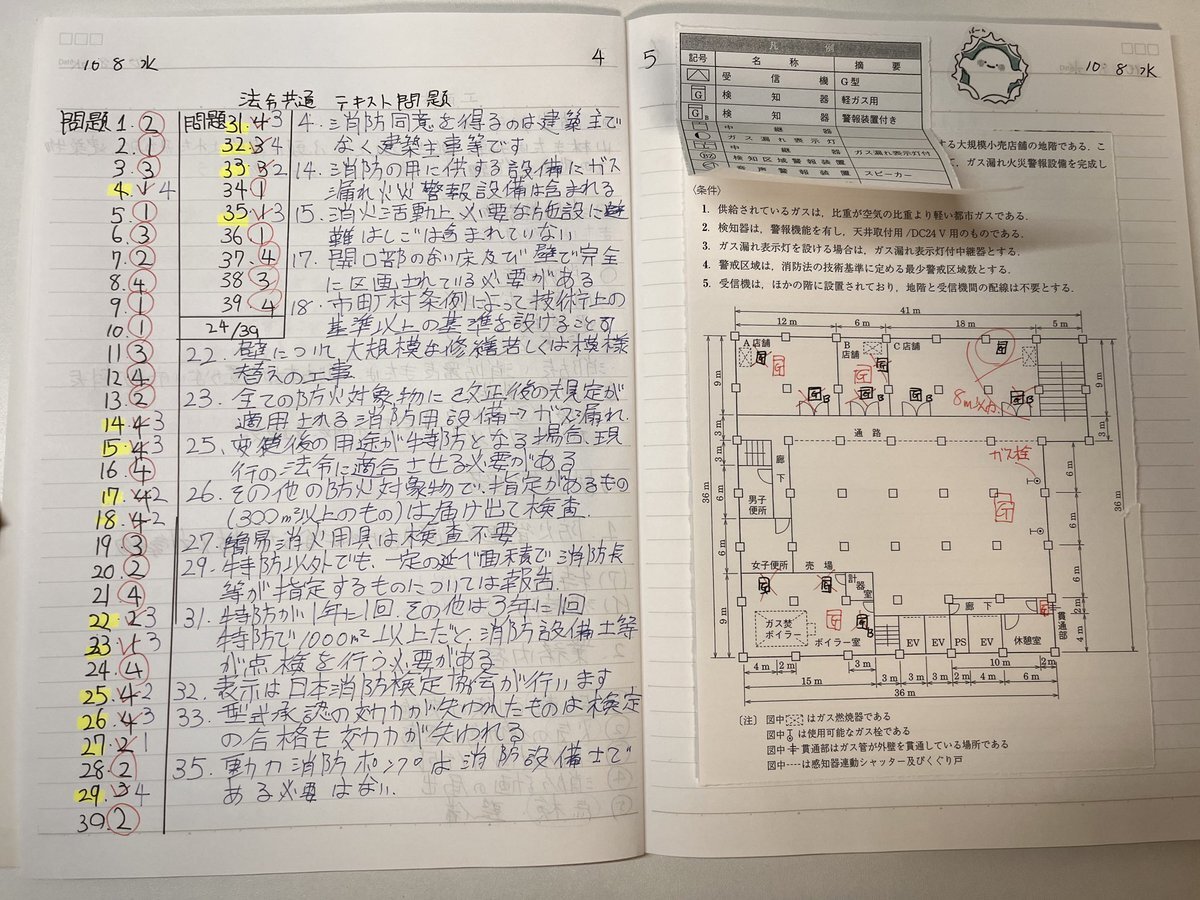 10 8 水
4
法令共通 テキスト問題
問題1.②
2.①
3.③
4.1 4
5.①
6.③
7.②
8.④
9.①
10.①
11③
12④
13②
14.4 3
15.4 3
16.④
17.4 2
18.4 2
19③
20.②
21④
22.2 3
33.1 3
24.④
25.4 2
26.4 3
27.2 1
28.②
29.3 4
39.②
問題31.4 3
32.3 4
33.3 2
34①
35.1 3
36①
37.④
38③
39④
24/39
4.消防同意を得るのは建築主で
なく建築主事等です
14.消防の用に供する設備にガス
漏れ火災警報設備は含まれる
15.消火活動上必要な施設に避
難はしごは含まれていない
17.開口部のない床及び壁で完全
に区画されている必要がある
18.市町村条例によって技術上の
基準以上の基準を設けることす
22.壁について大規模な修繕若しくは模様
替えの工事
23.全ての防火対象物に改正後の規定が
適用される消防用設備→ガス漏れ.
25.変更後の用途が特防となる場合、現
行の法令に適合させる必要がある
26.その他の防火対象物で、指定があるもの
(300m²以上のもの)は届け出て検査.
27.簡易消火用具は検査不要
29.特防以外でも、一定の延べ面積で消防長
等が指定するものについては報告.
31.特防が1年に1回、その他は3年に1回
特防で1000m²以上だと、消防設備士等
が点検を行う必要がある
32.表示は日本消防検定協会が行います
33.型式承認の効力が失われたものは検定
の合格も効力が失われる
35.動力消防ポンプは消防設備士で
ある必要はない.
5
10 8 水
凡例
記号 名称 摘要
受信機 G型
G 検知器 軽ガス用
G B 検知器 警報装置付き
中継器
ガス漏れ表示灯
中継器 ガス漏れ表示灯付
検知区域警報装置
音声警報装置 スピーカー
する大規模小売店舗の地階である．こ
て，ガス漏れ火災警報設備を完成し
〈条件〉
1. 供給されているガスは，比重が空気の比重より軽い都市ガスである．
2. 検知器は，警報機能を有し，天井取付用/DC24 V 用のものである．
3. ガス漏れ表示灯を設ける場合は，ガス漏れ表示灯付中継器とする．
4. 警戒区域は，消防法の技術基準に定める最少警戒区域数とする．
5. 受信機は，ほかの階に設置されており，地階と受信機間の配線は不要とする．
41 m
12 m 6 m 18 m 5 m
A 店舗
B 店舗
C 店舗
G G G G G
G B G B G B G B
8m以内
9 m
9 m
3 m
3 m
通路
3 m
3 m
ガス栓
廊下
9 m
6 m
男子便所
G
6 m
36 m
36 m
6 m
6 m
女子便所 売場
計器室
G G
G G B
9 m
ガス焚ボイラー
ボイラー室
廊下
G
EV EV PS EV 休憩室
貫通部
2 m
4 m
4 m 2 m 3 m 3 m 3 m 2 m 3 m 4 m 6 m
10 m 2 m
15 m
36 m
〔注〕 図中 はガス燃焼器である
図中 は使用可能なガス栓である
図中 貫通部はガス管が外壁を貫通している場所である
図中 ---- は感知器連動シャッター及びくぐり戸